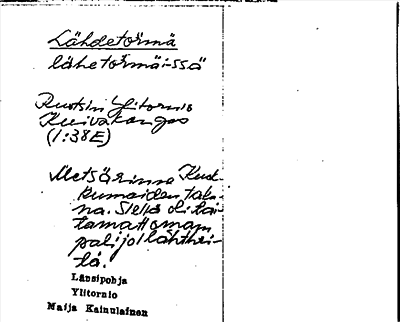 Lähdetörmä
lähetörmäissä
Ruotsin Ylitornio
Kuivakangas
(1:38E)
Metsärinne Kuok-
kumaiden taka-
na. Siellä oli lai-
tamattoman
palijol lähthei-
tä.
Länsipohja
Ylitornio
Maija Kainulainen